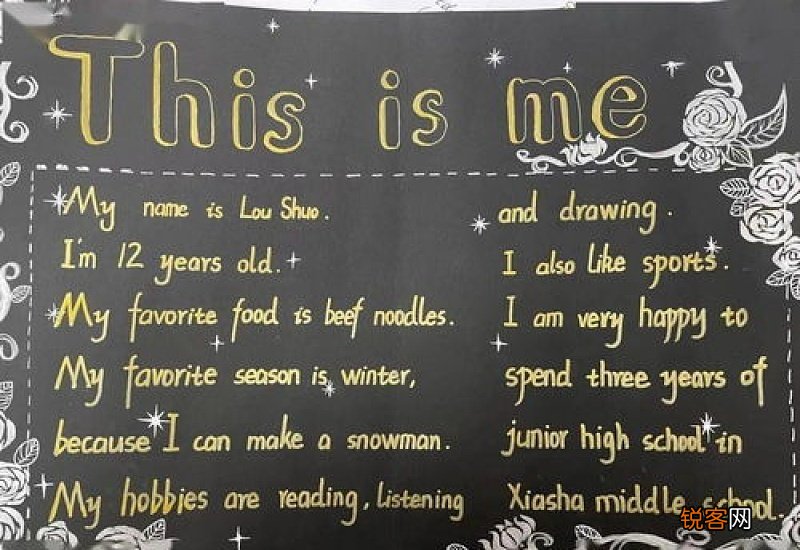 This is me
My name is Lou Shuo.
I'm 12 years old.
My favorite food is beef noodles.
My favorite season is winter,
because I can make a snowman.
My hobbies are reading, listening
and drawing.
I also like sports.
I am very happy to
spend three years of
junior high school in
Xiasha middle school.
锐客网